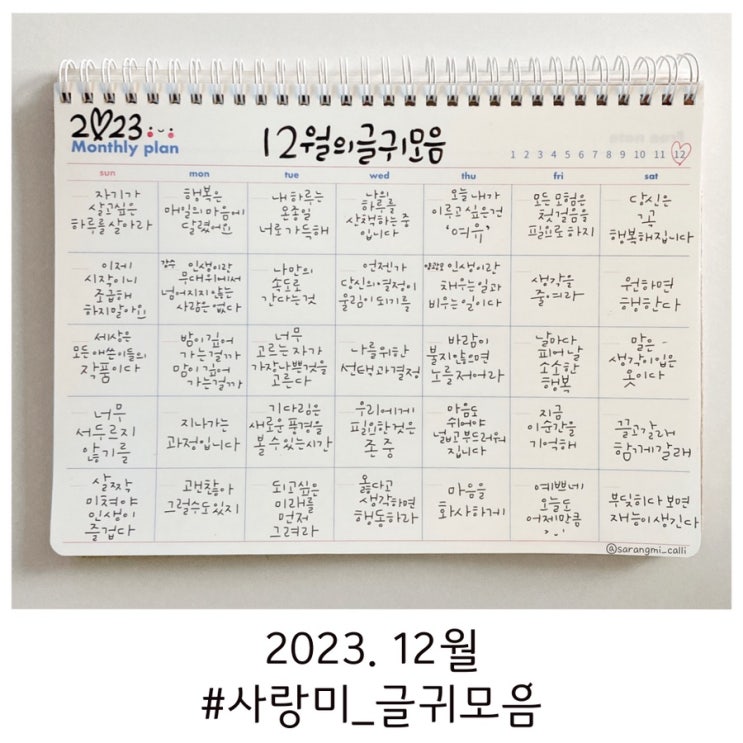 2023
Monthly plan
12월의 글귀모음
1 2 3 4 5 6 7 8 9 10 11 12
sun mon tue wed thu fri sat
자기가
살고싶은
하루를 살아라
행복은
매일의 마음에
달렸어요
내 하루는
온종일
너로 가득해
나의
하루를
산책하는 중
입니다
오늘 내가
이루고 싶은건
'여유'
모든 모험은
첫 걸음을
필요로 하지
당신은
꼭
행복해집니다
이제
시작이니
조급해
하지 말아요
인생이란
무대위에서
넘어지지 않는
사람은 없다
나만의
속도로
간다는 것
언젠가
당신의 열정이
울림이 되기를
인생이란
채우는 일과
비우는 일이다
생각을
줄여라
원하면
행한다
세상은
모든 애쓴이들의
작품이다
밤이 깊어
가는걸까
맘이 깊어
가는걸까
너무
고르는 자가
가장 나쁜것을
고른다
나를 위한
선택과 결정
바람이
불지 않으면
노를 저어라
날마다
피어날
소소한
행복
말은
생각이 입은
옷이다
너무
서두르지
않기를
지나가는
과정입니다
기다림은
새로운 풍경을
볼 수 있는 시간
우리에게
필요한 것은
존중
마음도
쉬어야
넓고 부드러워
집니다
지금
이 순간을
기억해
끌고갈래
함께갈래
살짝
미쳐야
인생이
즐겁다
괜찮아
그럴수도 있지
되고싶은
미래를
먼저
그려라
옳다고
생각하면
행동하라
마음을
화사하게
예쁘네
오늘도
어제만큼
부딪히다 보면
재능이 생긴다
@sarangmi_calli
2023. 12월
#사랑미_글귀모음